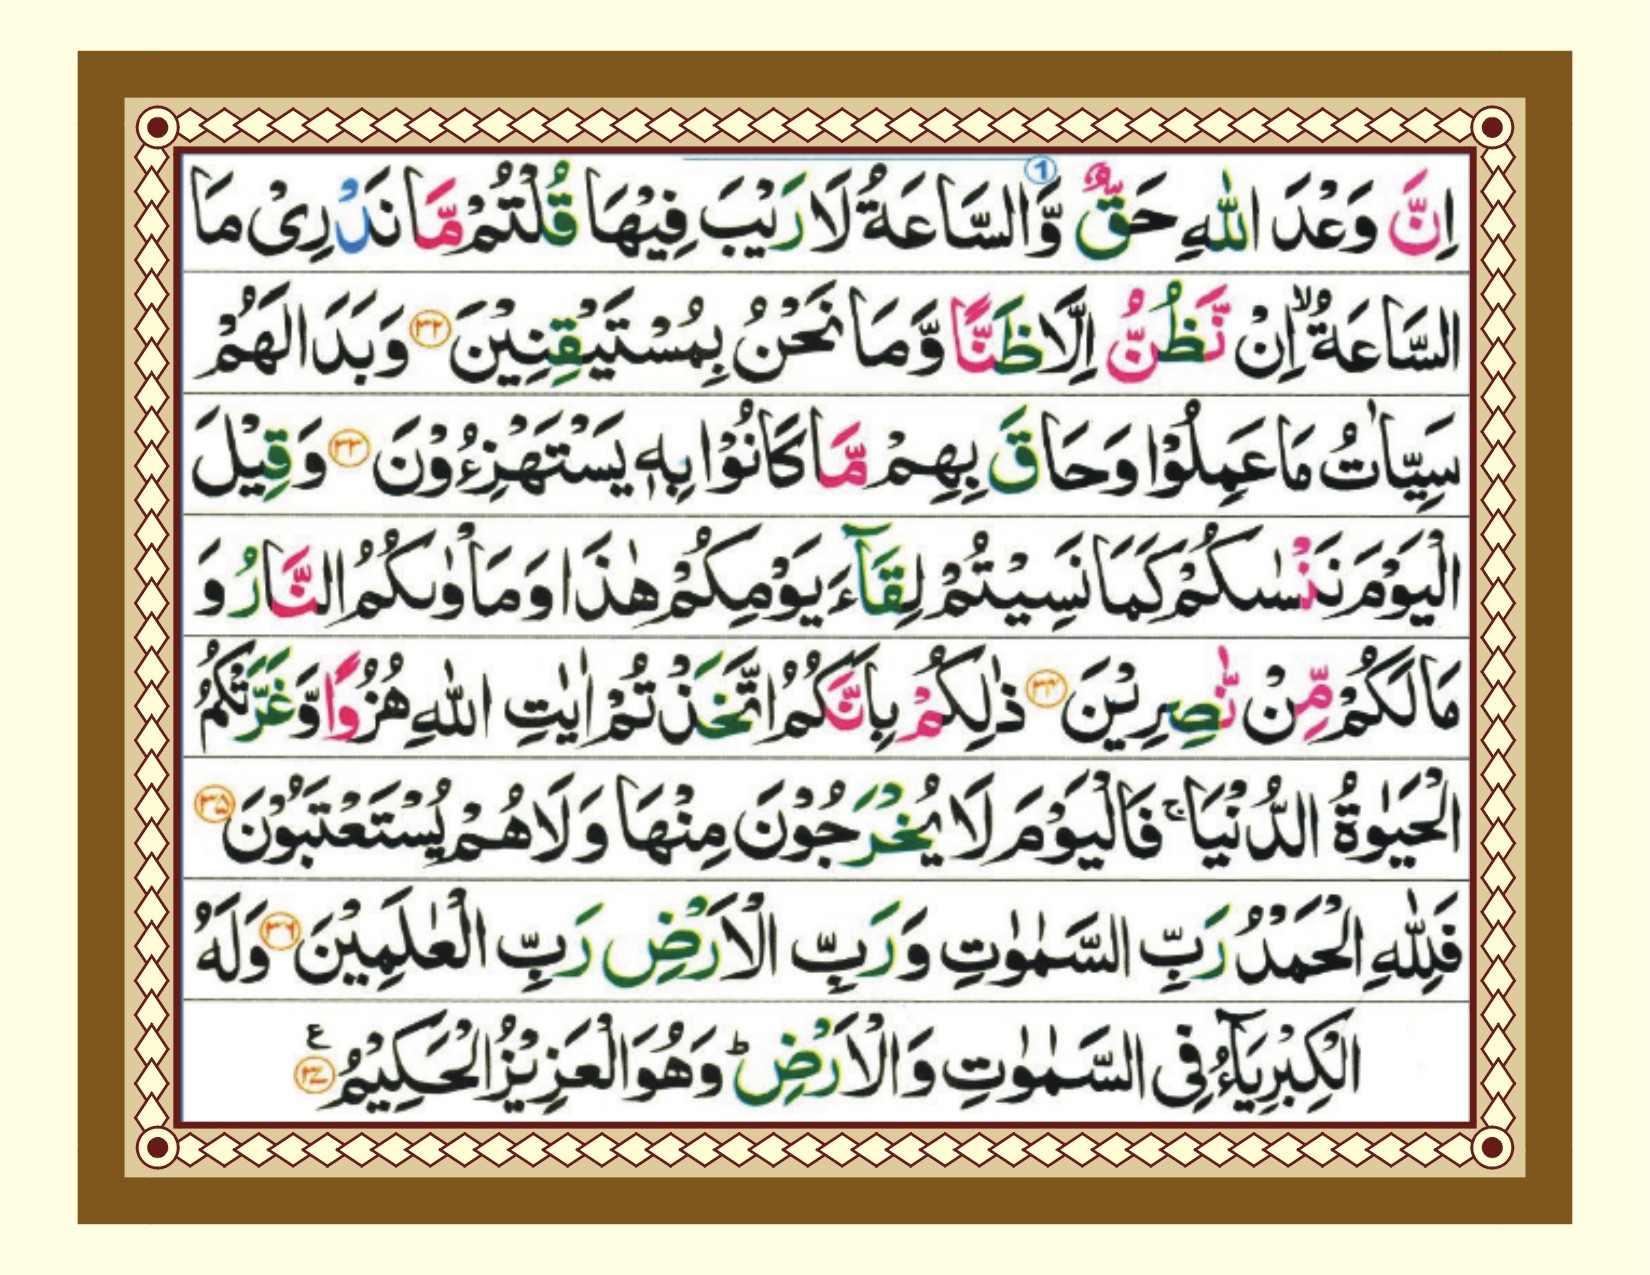 اِنَّ وَعْدَ اللّٰهِ حَقٌّ وَّالسَّاعَةُ لَا رَيْبَ فِيْهَا قُلْتُمْ مَّا نَدْرِىْ مَا
السَّاعَةُ ۙ اِنْ نَّظُنُّ اِلَّا ظَنًّا وَّمَا نَحْنُ بِمُسْتَيْقِنِيْنَ ۳۲ وَبَدَا لَهُمْ
سَيِّاٰتُ مَا عَمِلُوْا وَحَاقَ بِهِمْ مَّا كَانُوْا بِهٖ يَسْتَهْزِءُوْنَ ۳۳ وَقِيْلَ
الْيَوْمَ نَنْسٰىكُمْ كَمَا نَسِيْتُمْ لِقَآءَ يَوْمِكُمْ هٰذَا وَمَاْوٰىكُمُ النَّارُ وَ
مَا لَكُمْ مِّنْ نّٰصِرِيْنَ ۳۴ ذٰلِكُمْ بِاَنَّكُمُ اتَّخَذْتُمْ اٰيٰتِ اللّٰهِ هُزُوًا وَّغَرَّتْكُمُ
الْحَيٰوةُ الدُّنْيَا ۚ فَالْيَوْمَ لَا يُخْرَجُوْنَ مِنْهَا وَلَا هُمْ يُسْتَعْتَبُوْنَ ۳۵
فَلِلّٰهِ الْحَمْدُ رَبِّ السَّمٰوٰتِ وَرَبِّ الْاَرْضِ رَبِّ الْعٰلَمِيْنَ ۳۶ وَلَهُ
الْكِبْرِيَآءُ فِى السَّمٰوٰتِ وَالْاَرْضِ ؕ وَهُوَ الْعَزِيْزُ الْحَكِيْمُ ۳۷ ع